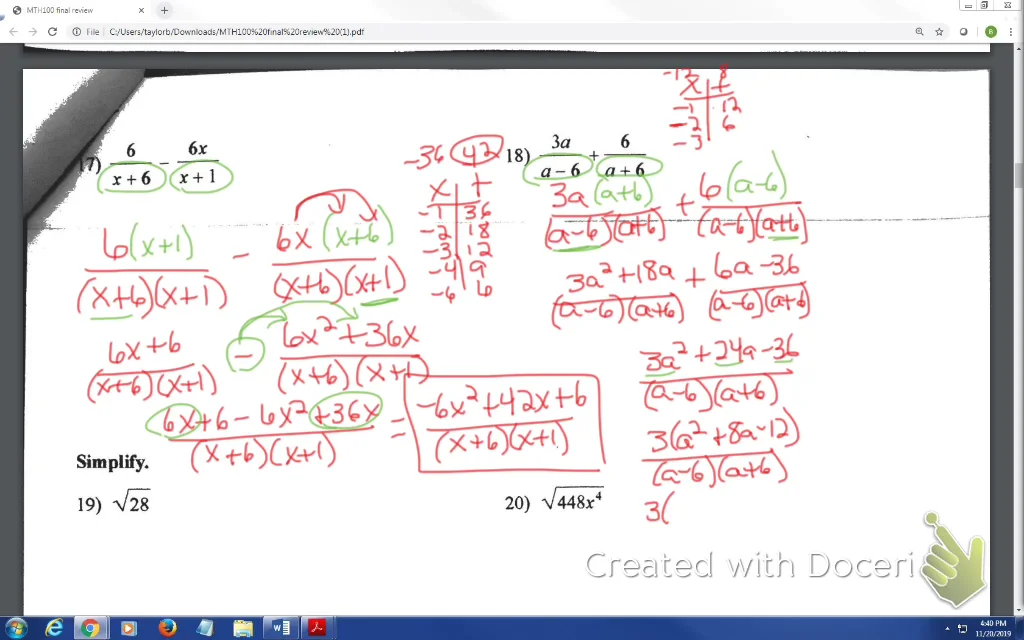 MTH100 final review
File | C:/Users/taylorb/Downloads/MTH100%20final%20review%20(1).pdf
17) 6/(x + 6) − 6x/(x + 1)
6(x+1)/((x+6)(x+1)) − 6x(x+6)/((x+6)(x+1))
6x+6/((x+6)(x+1)) − 6x²+36x/((x+6)(x+1))
6x+6−6x²+36x/((x+6)(x+1)) = −6x²+42x+6/((x+6)(x+1))
−36 42
x | +
−1 | 36
−2 | 18
−3 | 12
−4 | 9
−6 | 6
18) 3a/(a − 6) + 6/(a + 6)
−12 8
x | +
−1 | 12
−2 | 6
−3
3a(a+6)/((a−6)(a+6)) + 6(a−6)/((a−6)(a+6))
3a²+18a/((a−6)(a+6)) + 6a−36/((a−6)(a+6))
3a²+24a−36/((a−6)(a+6))
3(a²+8a−12)/((a−6)(a+6))
3(
Simplify.
19) √28
20) √448x⁴
Created with Doceri
4:40 PM
11/20/2019